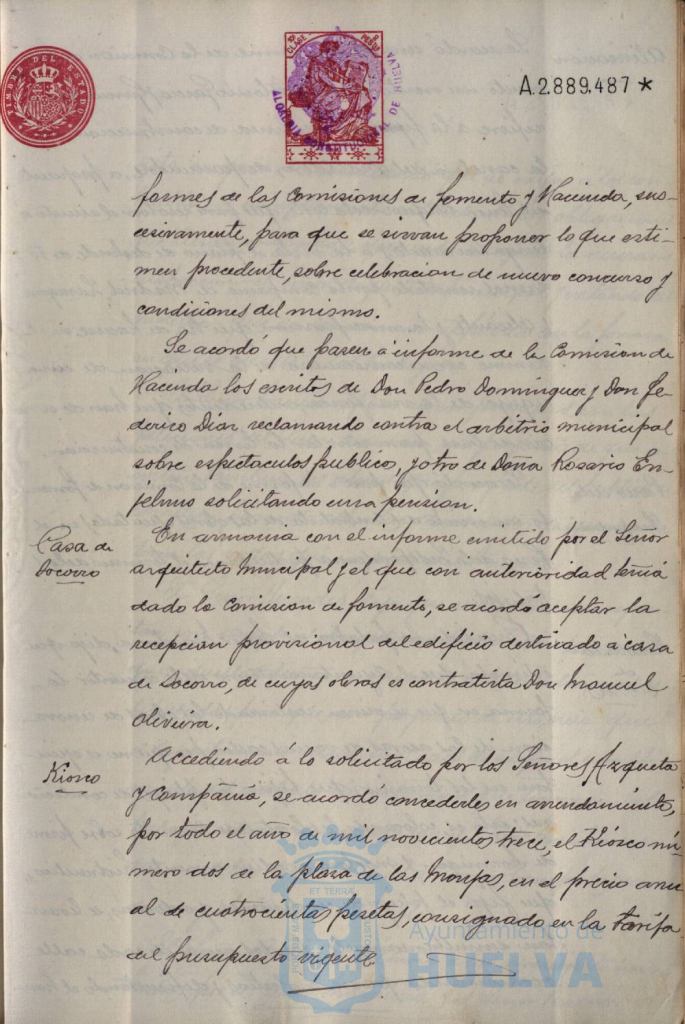 TIMBRE DEL ESTADO
10ª CLASE
PESETA
ALCALDIA CONSTITUCIONAL DE HUELVA
A.2.889.487*
formes de las Comisiones de fomento y Hacienda, suc-
cesivamente, para que se sirvan proponer lo que esti-
men procedente, sobre celebracion de nuevo concurso y
condiciones del mismo.
Se acordó que pasen a informe de la Comision de
Hacienda los escritos de Don Pedro Dominguez y Don Fe-
derico Diaz reclamando contra el arbitrio municipal
sobre espectaculos publico, y otro de Doña Rosario En-
jelmo solicitando una pension.
Casa de
Socorro
En armonia con el informe emitido por el Señor
arquitecto Municipal y el que con anterioridad tenia
dado la Comision de fomento, se acordó aceptar la
recepcion provisional del edificio destinado á casa
de Socorro, de cuyas obras es contratista Don Manuel
Oliveira.
Kiosco
Accediendo á lo solicitado por los Señores Azqueta
y Compañia, se acordó concederles en arrendamiento,
por todo el año de mil novicientos trece, el Kiosco nú-
mero dos de la plaza de las Monjas, en el precio anu-
al de cuatrocientas pesetas, consignado en la Tarifa
del presupuesto vigente
Ayuntamiento de
HUELVA